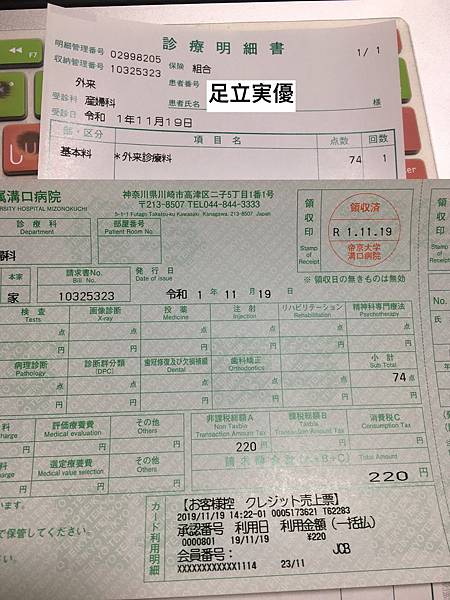 F7
診療明細書
明細管理番号 02998205
収納管理番号 10325323
保険 組合
1/ 1
外来
患者番号
受診科 産婦科
患者氏名 足立実優 様
受診日 令和 1年11月19日
部・区分 項目名 点数 回数
基本料 *外来診療料 74 1
属溝口病院
ERSITY HOSPITAL MIZONOKUCHI
神奈川県川崎市高津区二子5丁目1番1号
〒213-8507 TEL044-844-3333
5-1-1 Futago Takatsu-ku Kawasaki, Kanagawa, 213-8507 Japan
領収印
Stamp of Receipt
領収済
R 1.11.19
帝京大学
溝口病院
※ 領収日の無きものは無効
診療科
Department
部屋番号
Patient Room No.
婦科
本家
請求書No.
Bill No.
発行日
Date of issue
家 10325323 令和 1 年 11 月 19 日
検査 画像診断 投薬 注射 リハビリテーション 精神科専門療法
Tests X-ray Medicine Injection Rehabilitation Psychotherapy
点 点 点 点 点 点
円 円 円 円 円 円
病理診断 診断群分類 歯冠修復及び欠損補綴 歯科矯正 小計
Pathology (DPC) Dental Orthodontics Sub Total
点 点 点 点 74 点
円 円 円 円 円
評価療養費 その他
Medical evaluation Others
非課税総額A 課税総額B 消費税C
Non Taxble Transaction Amount Tax
Taxble Transaction Amount Tax
Consumption Tax
220 円 円 円
選定療養費 その他
Medical value selection Others
請求総金額(A+B+C) Total Amount
220 円
で保管してください。
カード利用明細
【お客様控 クレジット売上票】
2019/11/19 14:22-01 0005173621 T62283
承認番号 利用日 利用金額(一括払)
0000801 19/11/19 ¥220
会員番号: JCB
XXXXXXXXXXXX1114 23/11